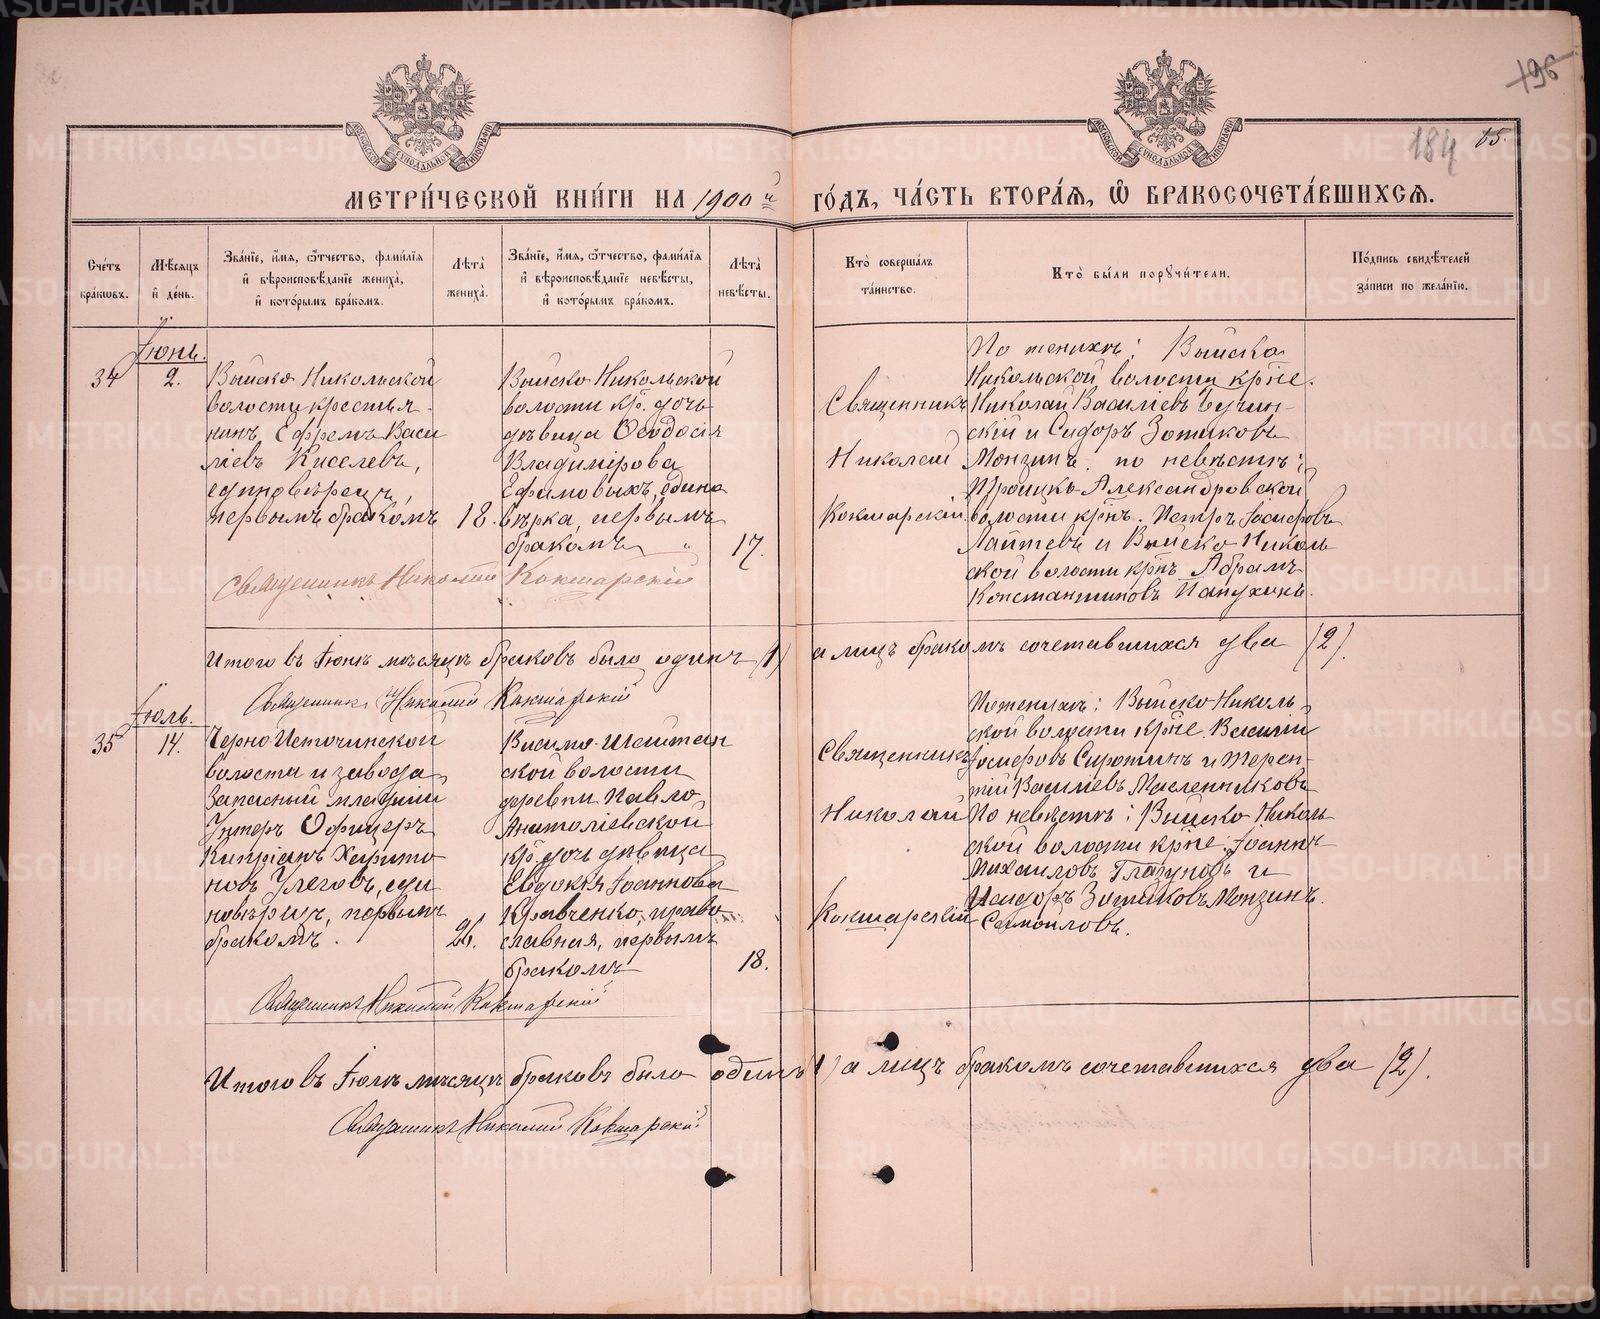 196
184
15
МЕТРИ́ЧЕСКОЙ КНИ́ГИ НА 1900й ГО́ДЪ, ЧА́СТЬ ВТОРА́Ѧ, Ѡ҆ БРАКОСОЧЕТА́ВШИХСѦ.
Сче́тъ бра́кѡвъ.
Мѣ́сѧцъ и҆ де́нь.
Зва́нїе, и҆́мѧ, ѻ҆́тчество, фами́лїѧ и҆ вѣроисповѣ́данїе жениха̀, и҆ кото́рымъ бра́комъ.
Лѣ́та жениха̀.
Зва́нїе, и҆́мѧ, ѻ҆́тчество, фами́лїѧ и҆ вѣроисповѣ́данїе невѣ́сты, и҆ кото́рымъ бра́комъ.
Лѣ́та невѣ́сты.
Кто̀ соверша́лъ та́инство.
Кто̀ бы́ли порꙋчи́тели.
По́дпись свидѣ́телей за́писи по жела́нїю.
Іюнь.
34
2.
Выйско Никольской
волости крестья-
нинъ Ефремъ Васи
ліевъ Киселевъ,
единовѣрецъ,
первымъ бракомъ
18.
Выйско Никольской
волости кр. дочь
дѣвица Ѳеодосія
Владимірова
Ефимовыхъ, едино
вѣрка, первымъ
бракомъ
17.
Священникъ
Николай
Кокшарскій
По женихѣ: Выйско
Никольской волости крне.
Николай Василіевъ Бучин-
скій и Сидоръ Зотиковъ
Монзинъ. по невѣстѣ:
Троицко Александровской
волости крнъ. Петръ Іосифовъ
Лаптевъ и Выйско Николь
ской волости крнъ Абрамъ
Константиновъ Папухинъ.
Священникъ Николай Кокшарскій
Итого въ Іюнѣ мѣсяцѣ браковъ было одинъ (1) а лицъ бракомъ сочетавшихся два (2).
Священникъ Николай Кокшарскій
Іюль.
35
14.
Черно-Источинской
волости и завода
Запасный младшій
Унтеръ Офицеръ
Кипріанъ Харито
новъ Улеговъ, еди
новѣрецъ, первымъ
бракомъ.
26.
Висимо-Шайтан
ской волости
деревни Павло
Анатоліевской
кр. дочь дѣвица
Евдокія Іоаннова
Кравченко, право
славная, первымъ
бракомъ
18.
Священникъ
Николай
Кокшарскій
По женихѣ: Выйско Николь
ской волости крне. Василій
Іосифовъ Сиротинъ и Терен-
тій Василіевъ Масленниковъ
По невѣстѣ: Выйско Николь
ской волости крне. Іоаннъ
Михаиловъ Глазуновъ и
Исидоръ Зотиковъ Монзинъ.
Самойловъ.
Священникъ Николай Кокшарскій
Итого въ Іюлѣ мѣсяцѣ браковъ было одинъ (1) а лицъ бракомъ сочетавшихся два (2).
Священникъ Николай Кокшарскій
METRIKI.GASO-URAL.RU